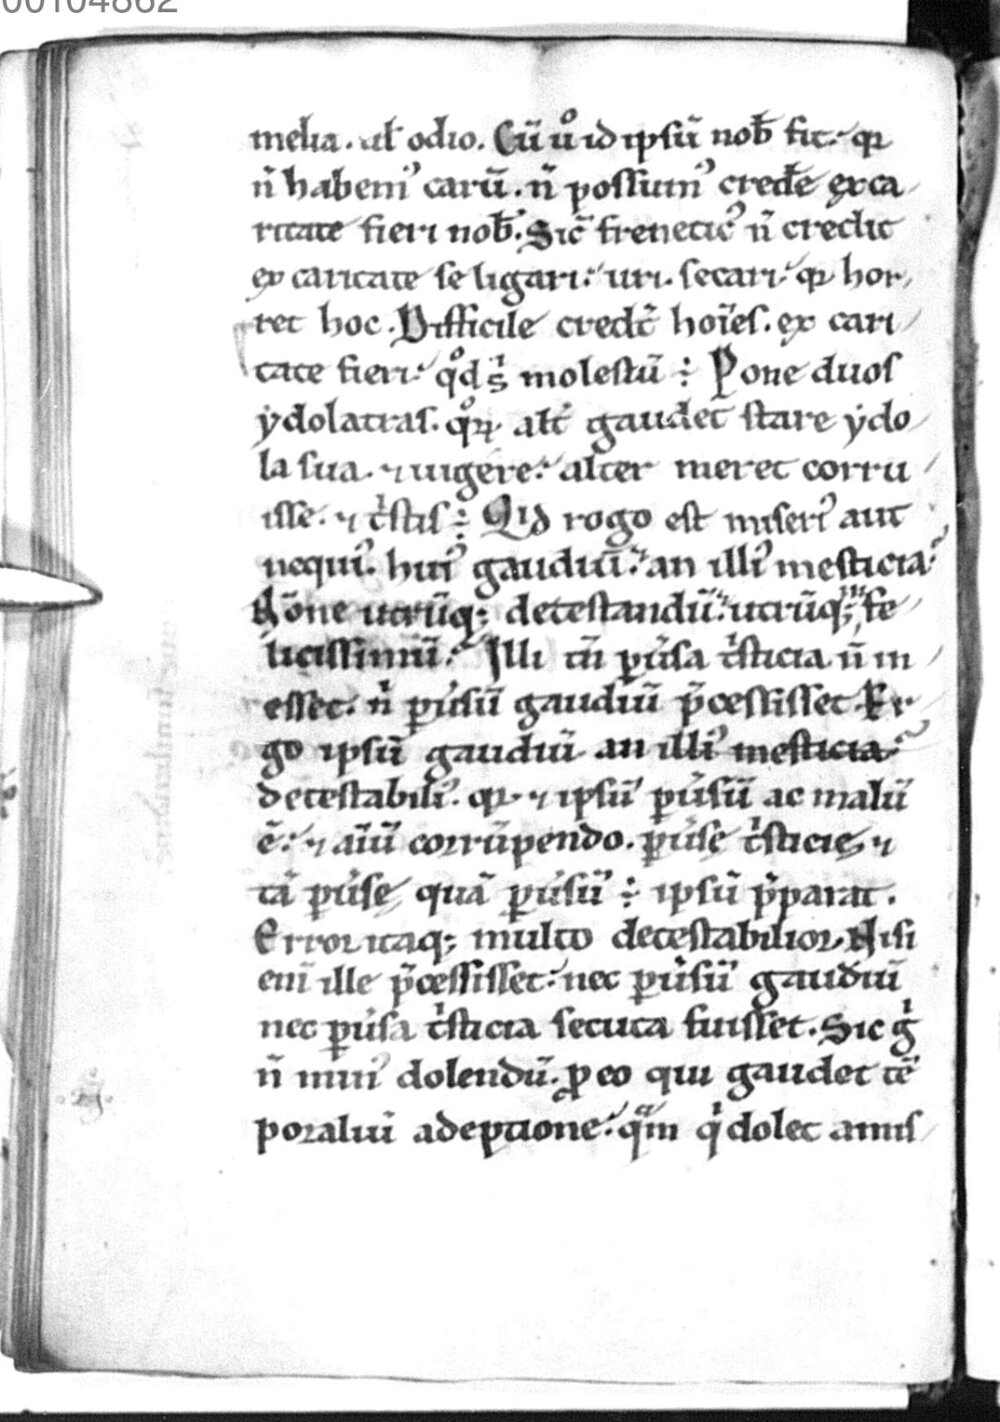 00104862
melia. ul̄ odio. Cū u͛o id ipsū nob̄ fit. qꝛ
n̄ habem᾽ carū. n̄ possum᾽ cred̄e ex ca
ritate fieri nob̄. Sic̄ frenetic᾽ n̄ credit
ex caritate se ligari. uri. secari. qꝛ hor
ret hoc. Difficile credt̄ hōies. ex cari
tate fieri. qͦd sⁱ molestū : Pone duos
ẏdolatras. qͦꝝ alt̄ gaudet stare ẏdo
la sua. ⁊ uigere. alter meret corru
isse. ⁊ tⁱstis : Qid rogo est miseri᾽ aut
nequi᾽. hui᾽ gaudiū. an illi᾽ mesticia.
Nōne utrūq; detestandū. utrūq; fe
licissimū. Illi tn̄ ꝑu͛sa tⁱsticia n̄ in
esset. nⁱ ꝑu͛sū gaudiū p̄cessisset. Er
go ipsū gaudiū an illi᾽ mesticia
detestabili᾽. qꝛ ⁊ ipsū ꝑu͛sū ac malū
ē. ⁊ aīū corrūpendo. ꝑu͛sę tⁱsticię ⁊
tā ꝑu͛sę quā ꝑu͛sū : ipsū p̄parat.
Error itaq; multo detestabilior. Nisi
eni ille p̄cessisset. nec ꝑu͛sū gaudiū
nec ꝑu͛sa tⁱsticia secuta fuisset. Sic gⁱ
n̄ min᾽ dolendū. ꝓ eo qui gaudet tē
poraliū adeptione. qᵃm qⁱ dolet amis